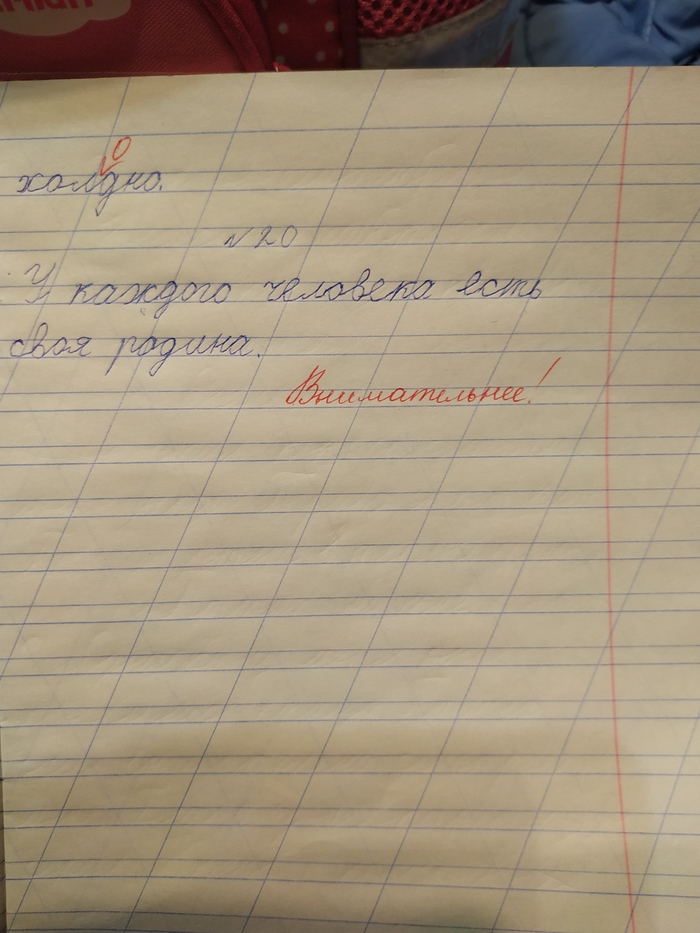 о
холдно.
№20
У каждого человека есть
своя родина.
Внимательнее!